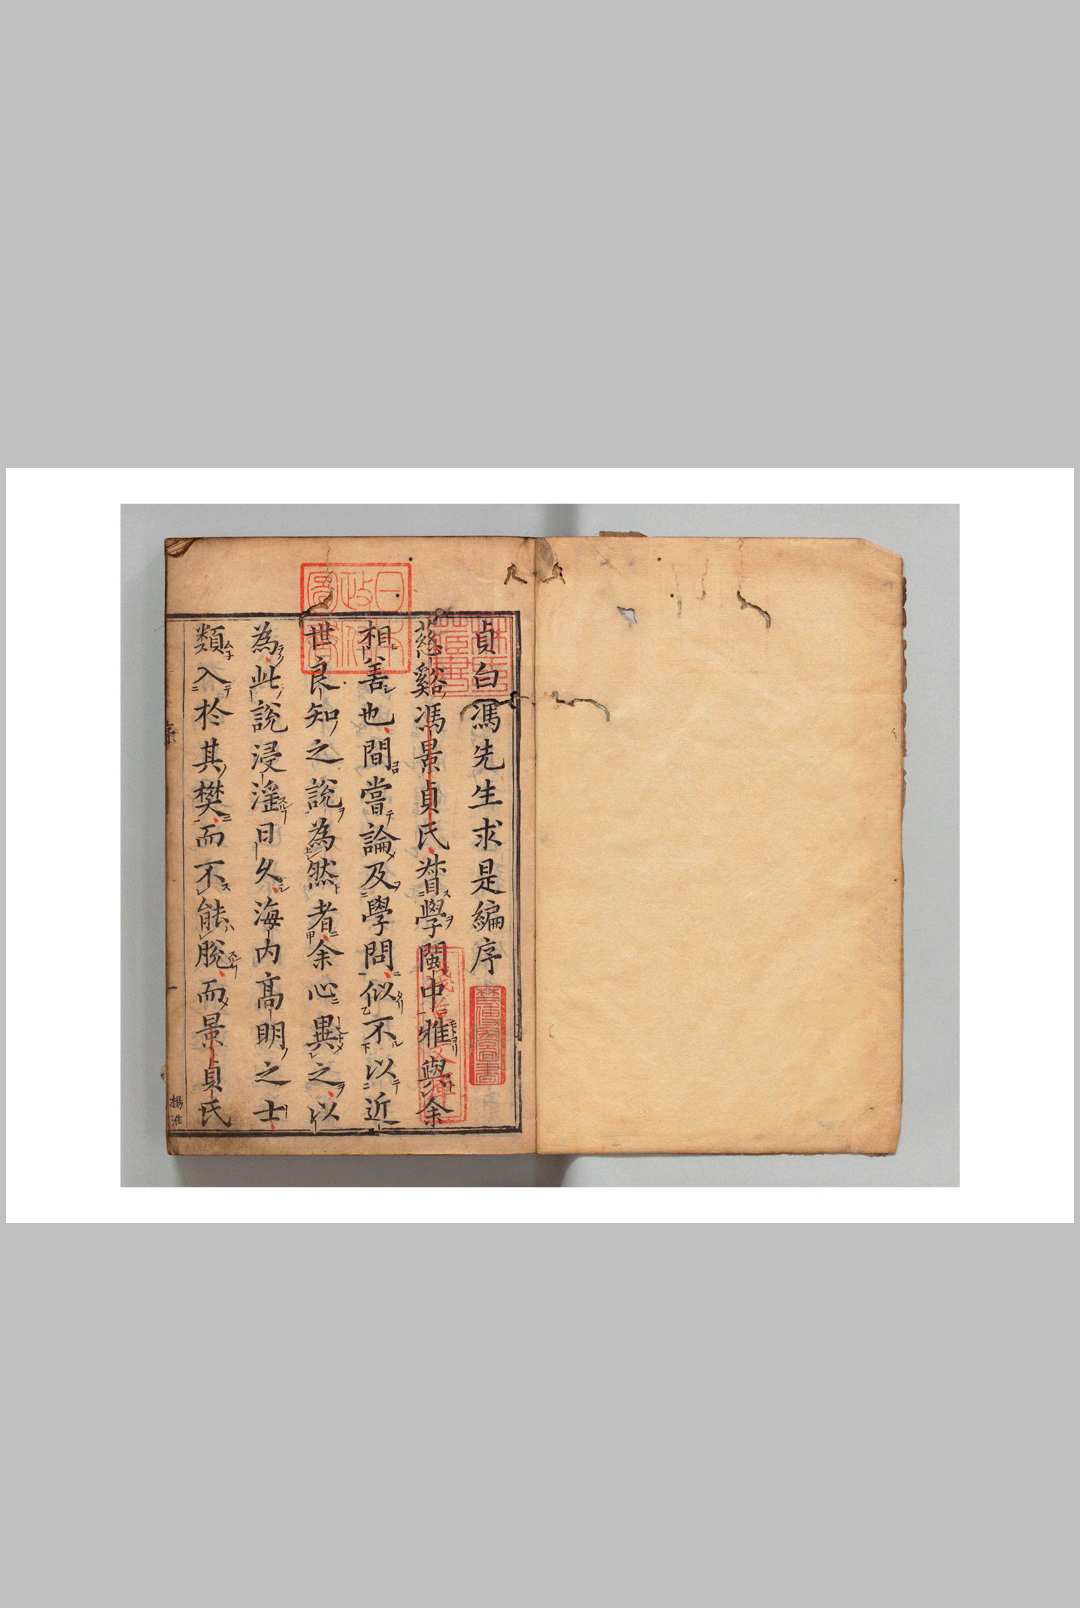 貞白馮先生求是編序
慈谿馮景貞氏督學閩中雅與余
相善也間嘗論及學問似不以近
世良知之說為然者余心異之以
為此說浸淫日久海内高明之士
類入於其樊而不能脫而景貞氏
序
一
楊淮
日本
政府
圖書